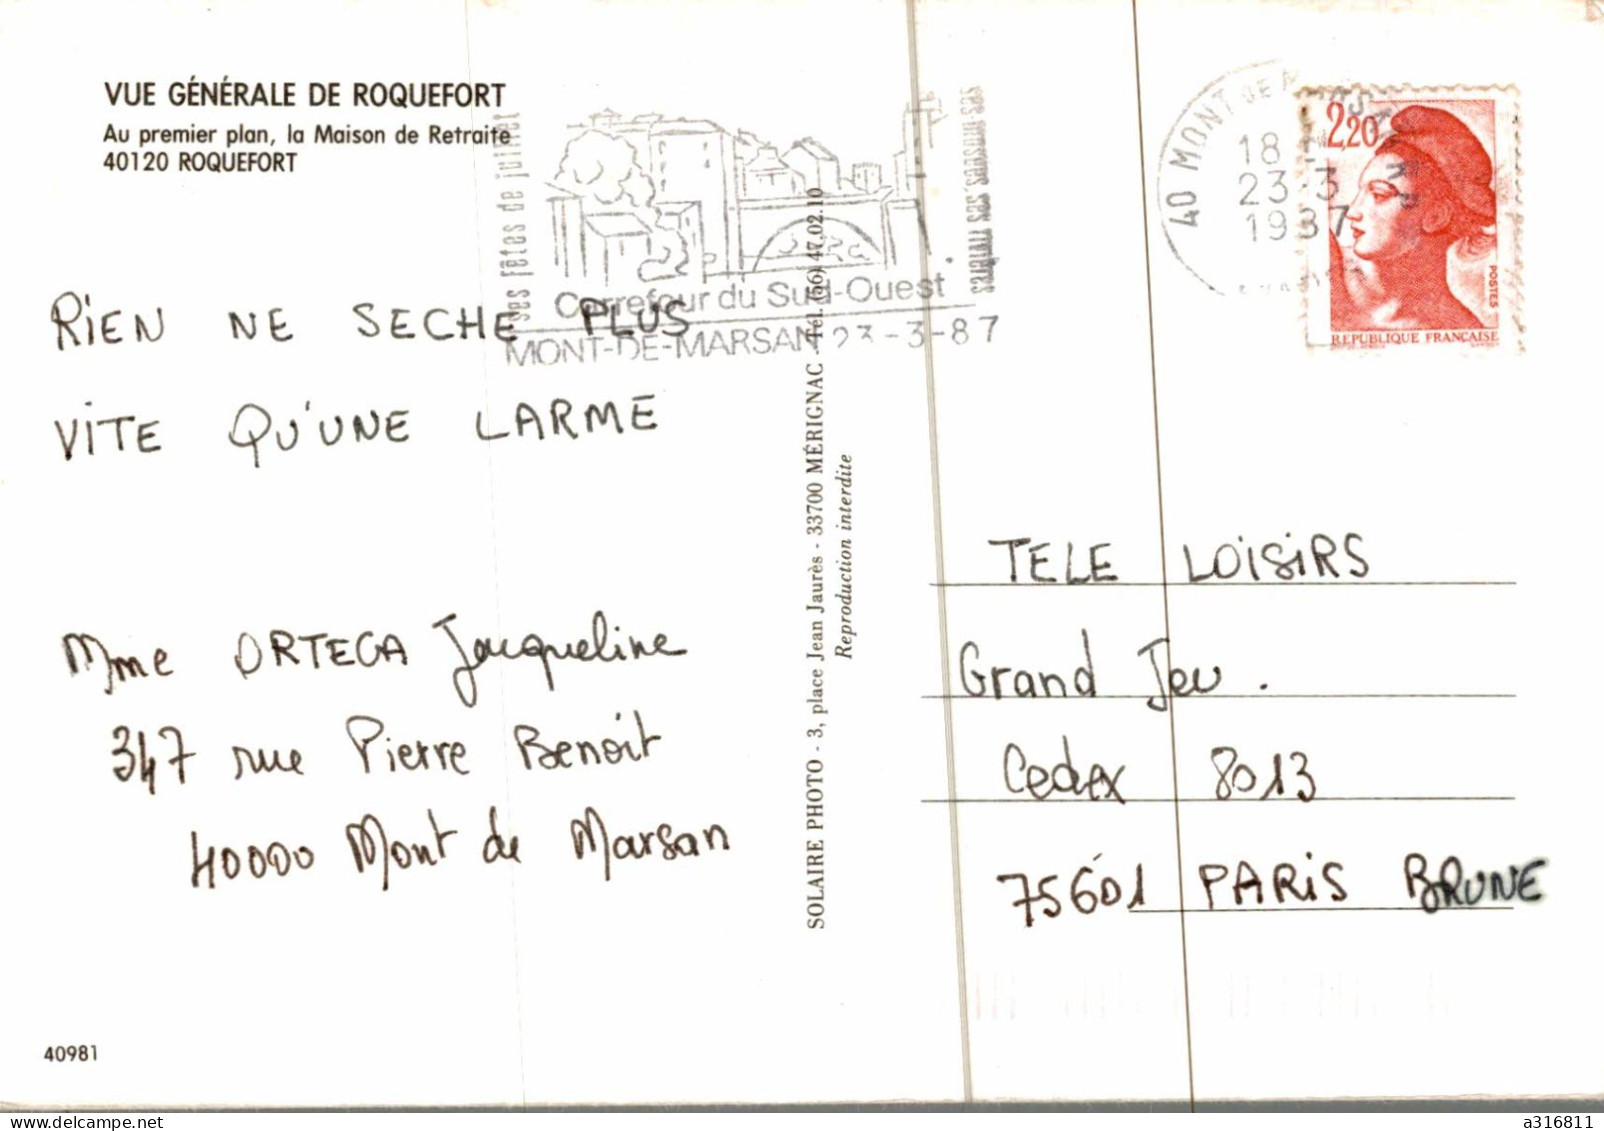 VUE GÉNÉRALE DE ROQUEFORT
Au premier plan, la Maison de Retraite
40120 ROQUEFORT
ses fêtes de juillet
ses musées, ses ruines
Carrefour du Sud-Ouest
MONT-DE-MARSAN 23-3-87
40 MONT DE MARSAN
18 H
23-3
1987
2,20
POSTES
REPUBLIQUE FRANÇAISE
RIEN NE SECHE PLUS
VITE QU'UNE LARME
Mme ORTEGA Jacqueline
347 rue Pierre Benoit
40000 Mont de Marsan
SOLAIRE PHOTO - 3, place Jean Jaurès - 33700 MÉRIGNAC - Tél. (56) 47.02.10
Reproduction interdite
TELE LOISIRS
Grand Jeu.
Cedex 8013
75601 PARIS BRUNE
40981
a316811